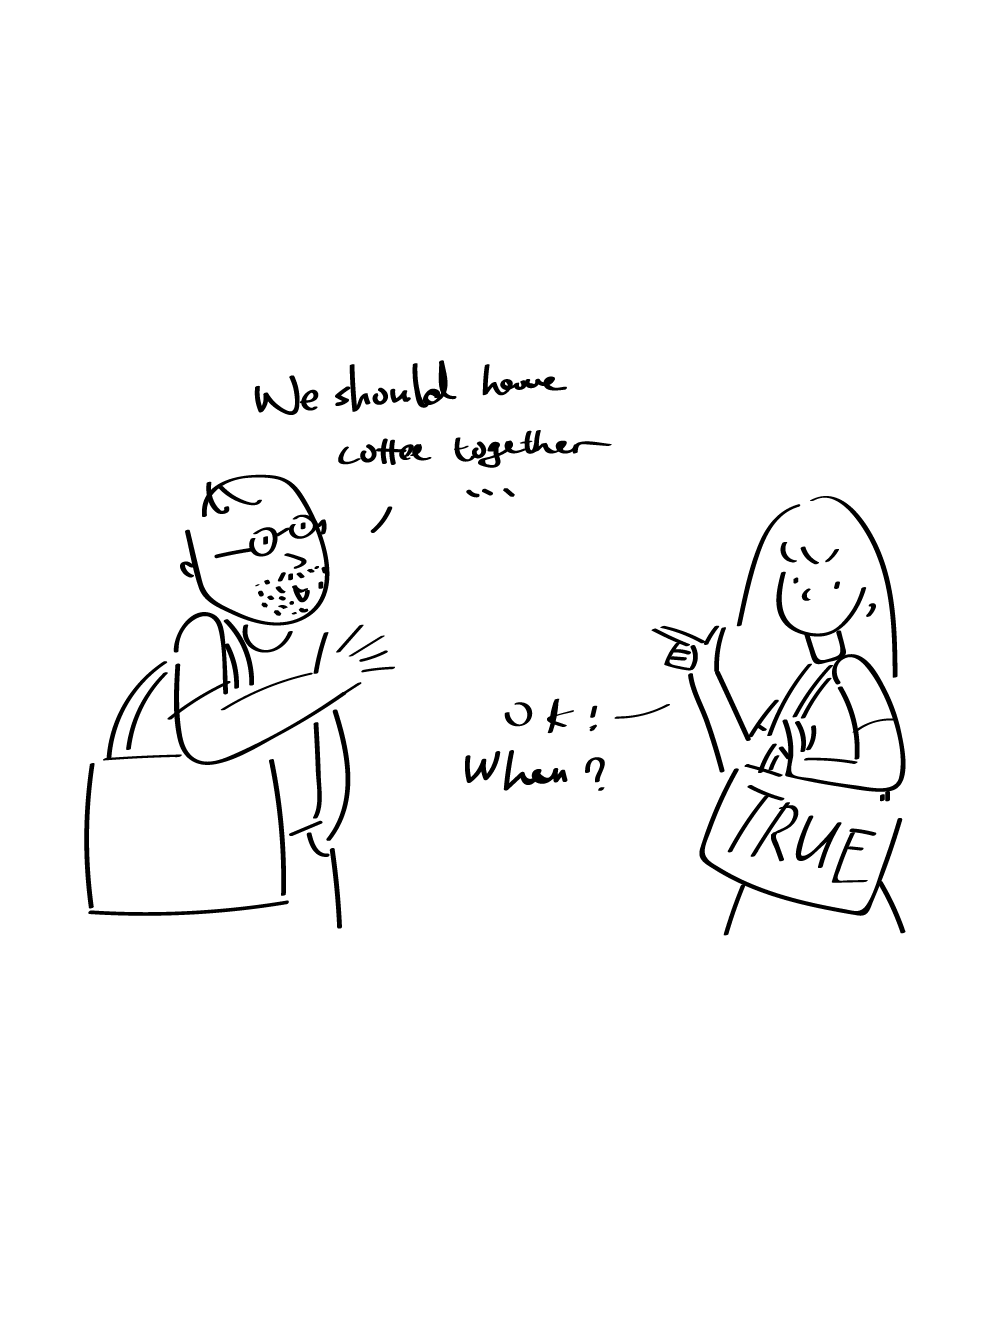 We should have
coffee together
...
OK!
When?
TRUE